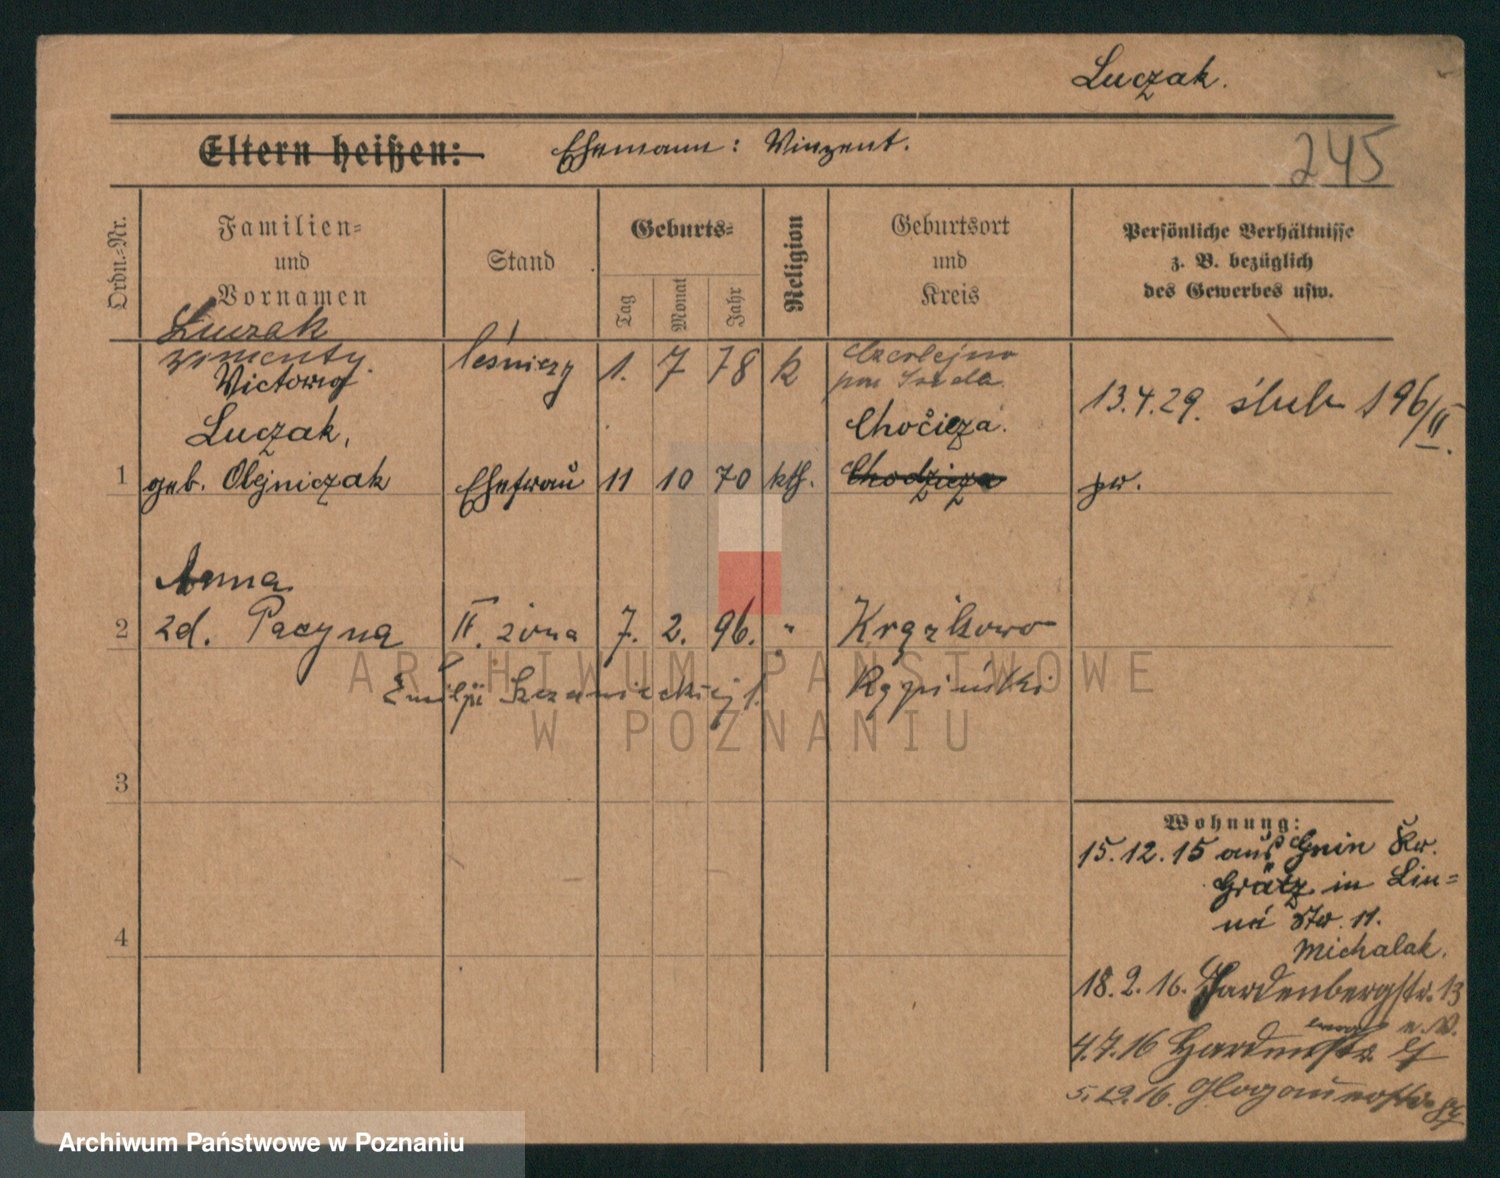 Luczak.
Eltern heißen: Ehemann: Winzent.
245
Ordn.-Nr.
Familien-
und
Vornamen
Stand
Geburts-
Tag
Monat
Jahr
Religion
Geburtsort
und
Kreis
Persönliche Verhältnisse
z. B. bezüglich
des Gewerbes usw.
Luczak
leśniczy 1. 7 78 k
pow. Środa
13.4.29. ślub 196/II.
Luczak,
Chočicza.
1 geb. Olejniczak Ehefrau 11 10 70 kth. Chodzicza
Anna
2 zd. Pacyna II. żona 7. 2. 96. " Krążkowo
Emilji Sczanieckiej 1. Kępiński
3
Wohnung:
15.12.15 aus Gnin Kr.
Grätz in Lin-
né Str. 11.
4
Michalak.
18.2.16. Hardenbergstr. 13
4.7.16
5.12.16. Glogauerstr.
ARCHIWUM PAŃSTWOWE
W POZNANIU
Archiwum Państwowe w Poznaniu